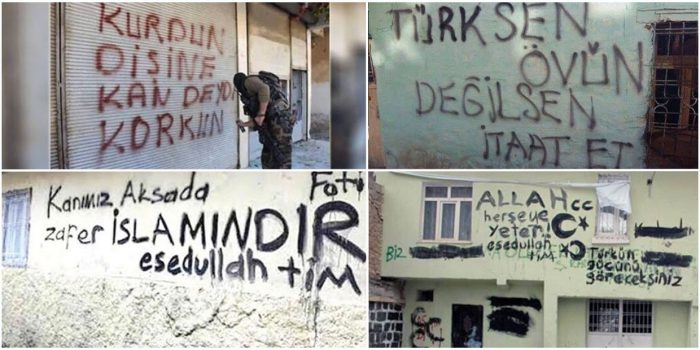 KURDUN
DİŞİNE
KAN DEYDİ
KORKUN
TÜRKSEN
ÖVÜN
DEĞİLSEN
İTAAT ET
Kanımız Aksada
zafer İSLAMINDIR
Fati
esedullah tim
ALLAH cc
herşeye
yeter!
esedullah
TİM
Biz
Türkün
gücünü
göreceksiniz